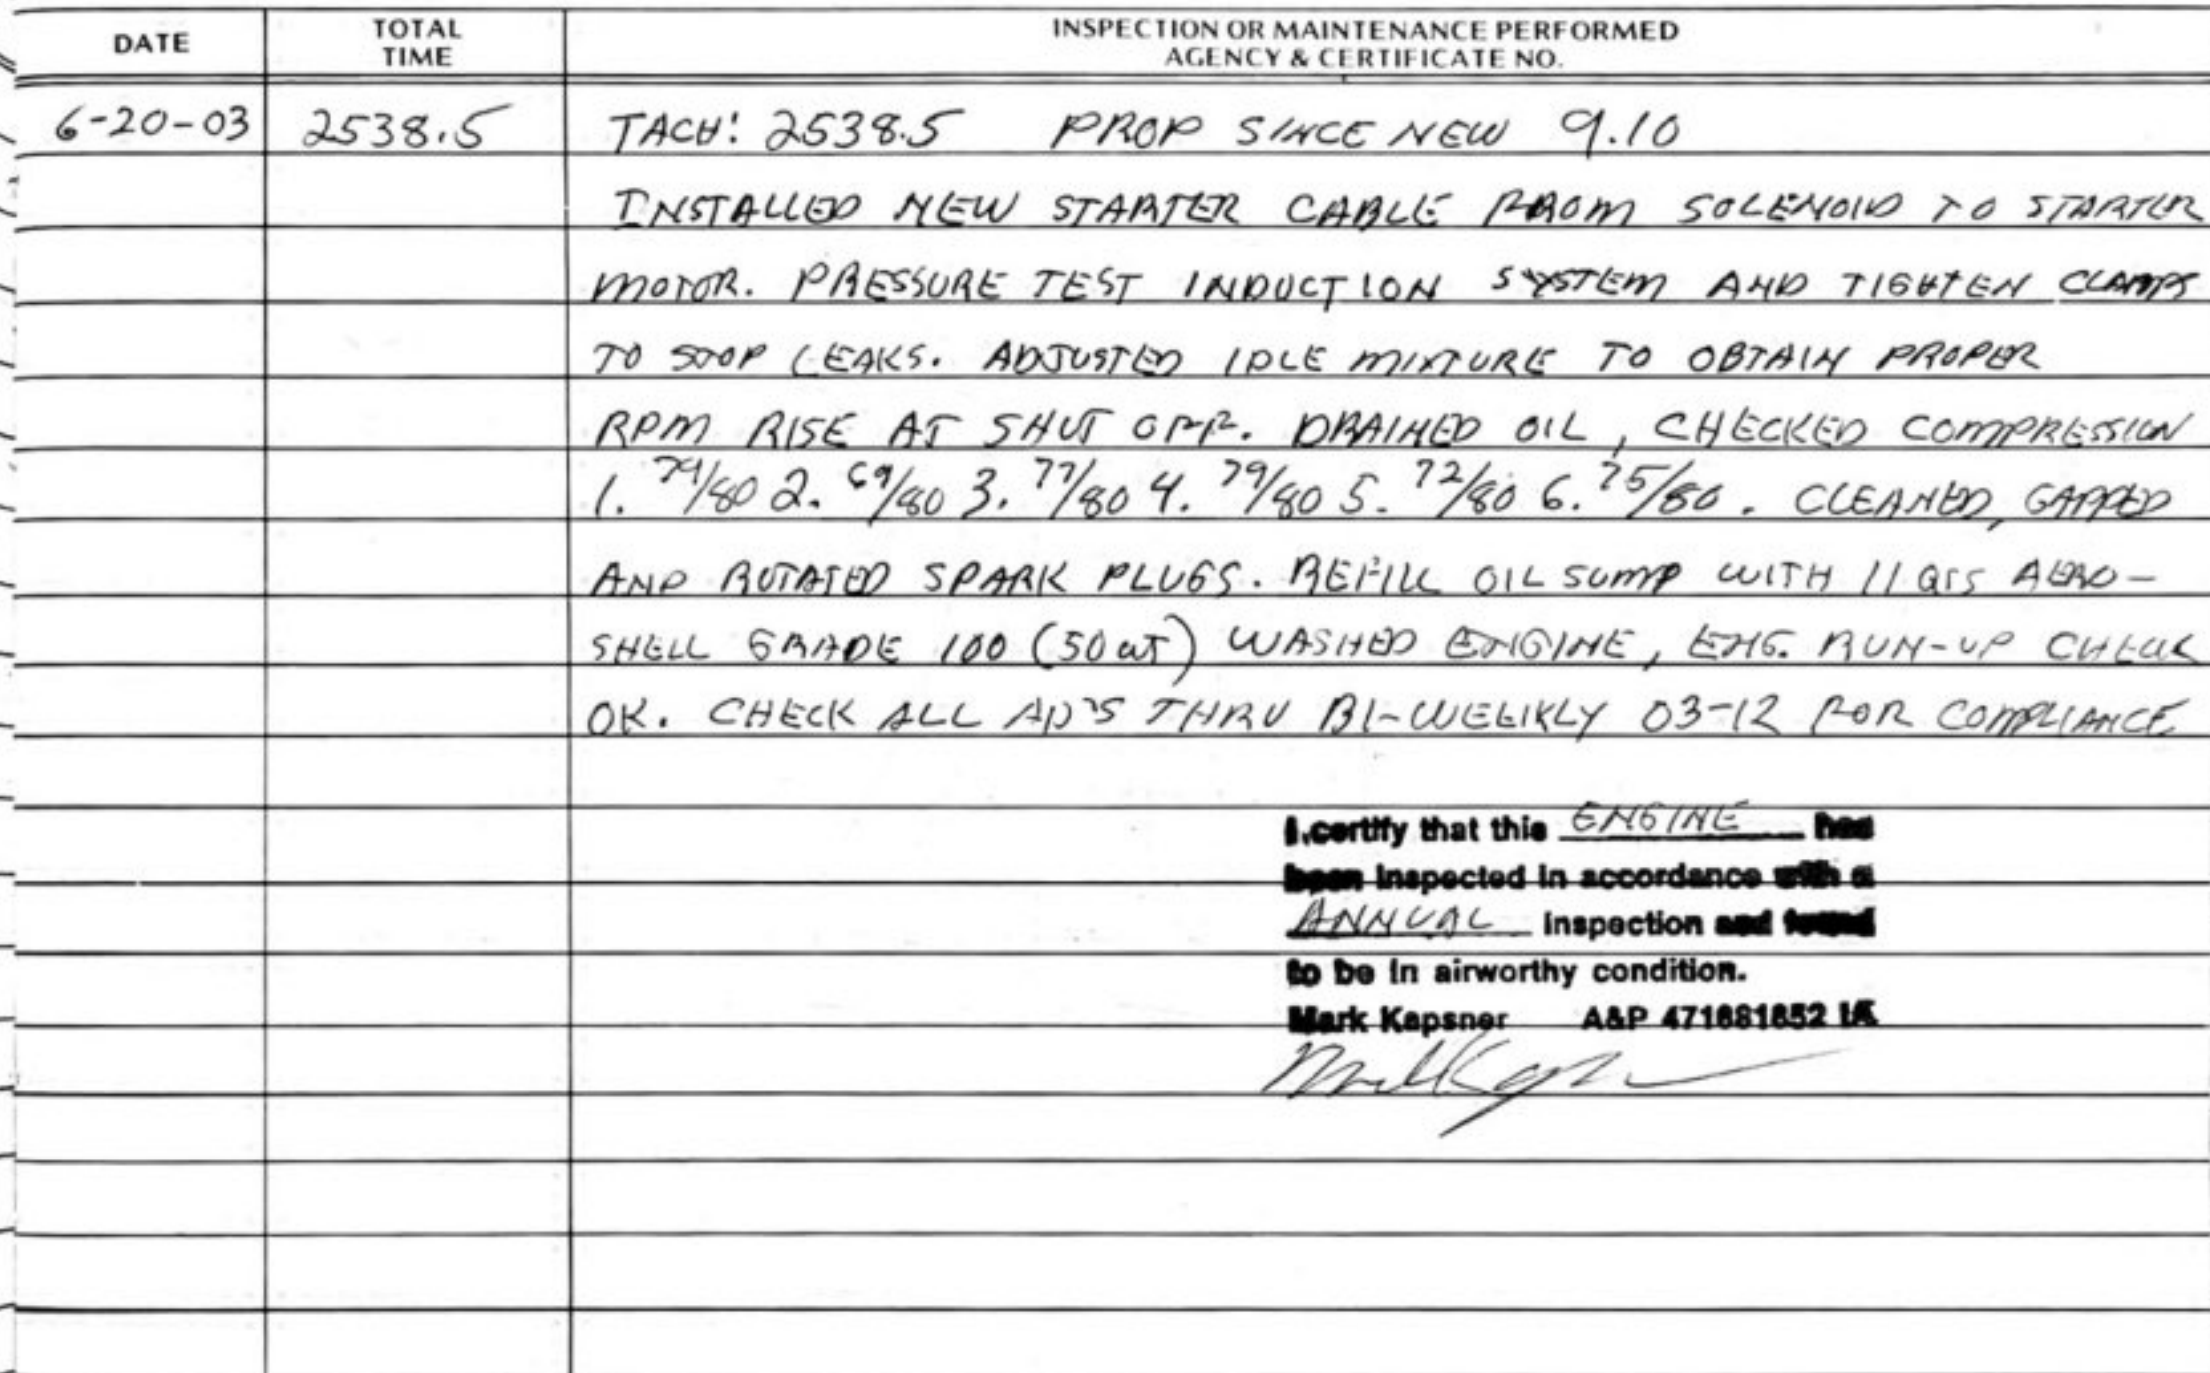 DATE
TOTAL TIME
INSPECTION OR MAINTENANCE PERFORMED
AGENCY & CERTIFICATE NO.
6-20-03 2538.5 TACH: 2538.5 PROP SINCE NEW 9.10
INSTALLED NEW STARTER CABLE FROM SOLENOID TO STARTER
MOTOR. PRESSURE TEST INDUCTION SYSTEM AND TIGHTEN CLAMPS
TO STOP LEAKS. ADJUSTED IDLE MIXTURE TO OBTAIN PROPER
RPM RISE AT SHUT OFF. DRAINED OIL, CHECKED COMPRESSION
1. 74/80 2. 69/80 3. 77/80 4. 79/80 5. 72/80 6. 75/80. CLEANED, GAPPED
AND ROTATED SPARK PLUGS. REFILL OIL SUMP WITH 11 QTS AERO-
SHELL GRADE 100 (50 WT) WASHED ENGINE, ENG. RUN-UP CHECK
OK. CHECK ALL AD'S THRU BI-WEEKLY 03-12 FOR COMPLIANCE
I certify that this ENGINE has
been inspected in accordance with a
ANNUAL inspection and found
to be in airworthy condition.
Mark Kapsner A&P 471681652 IA